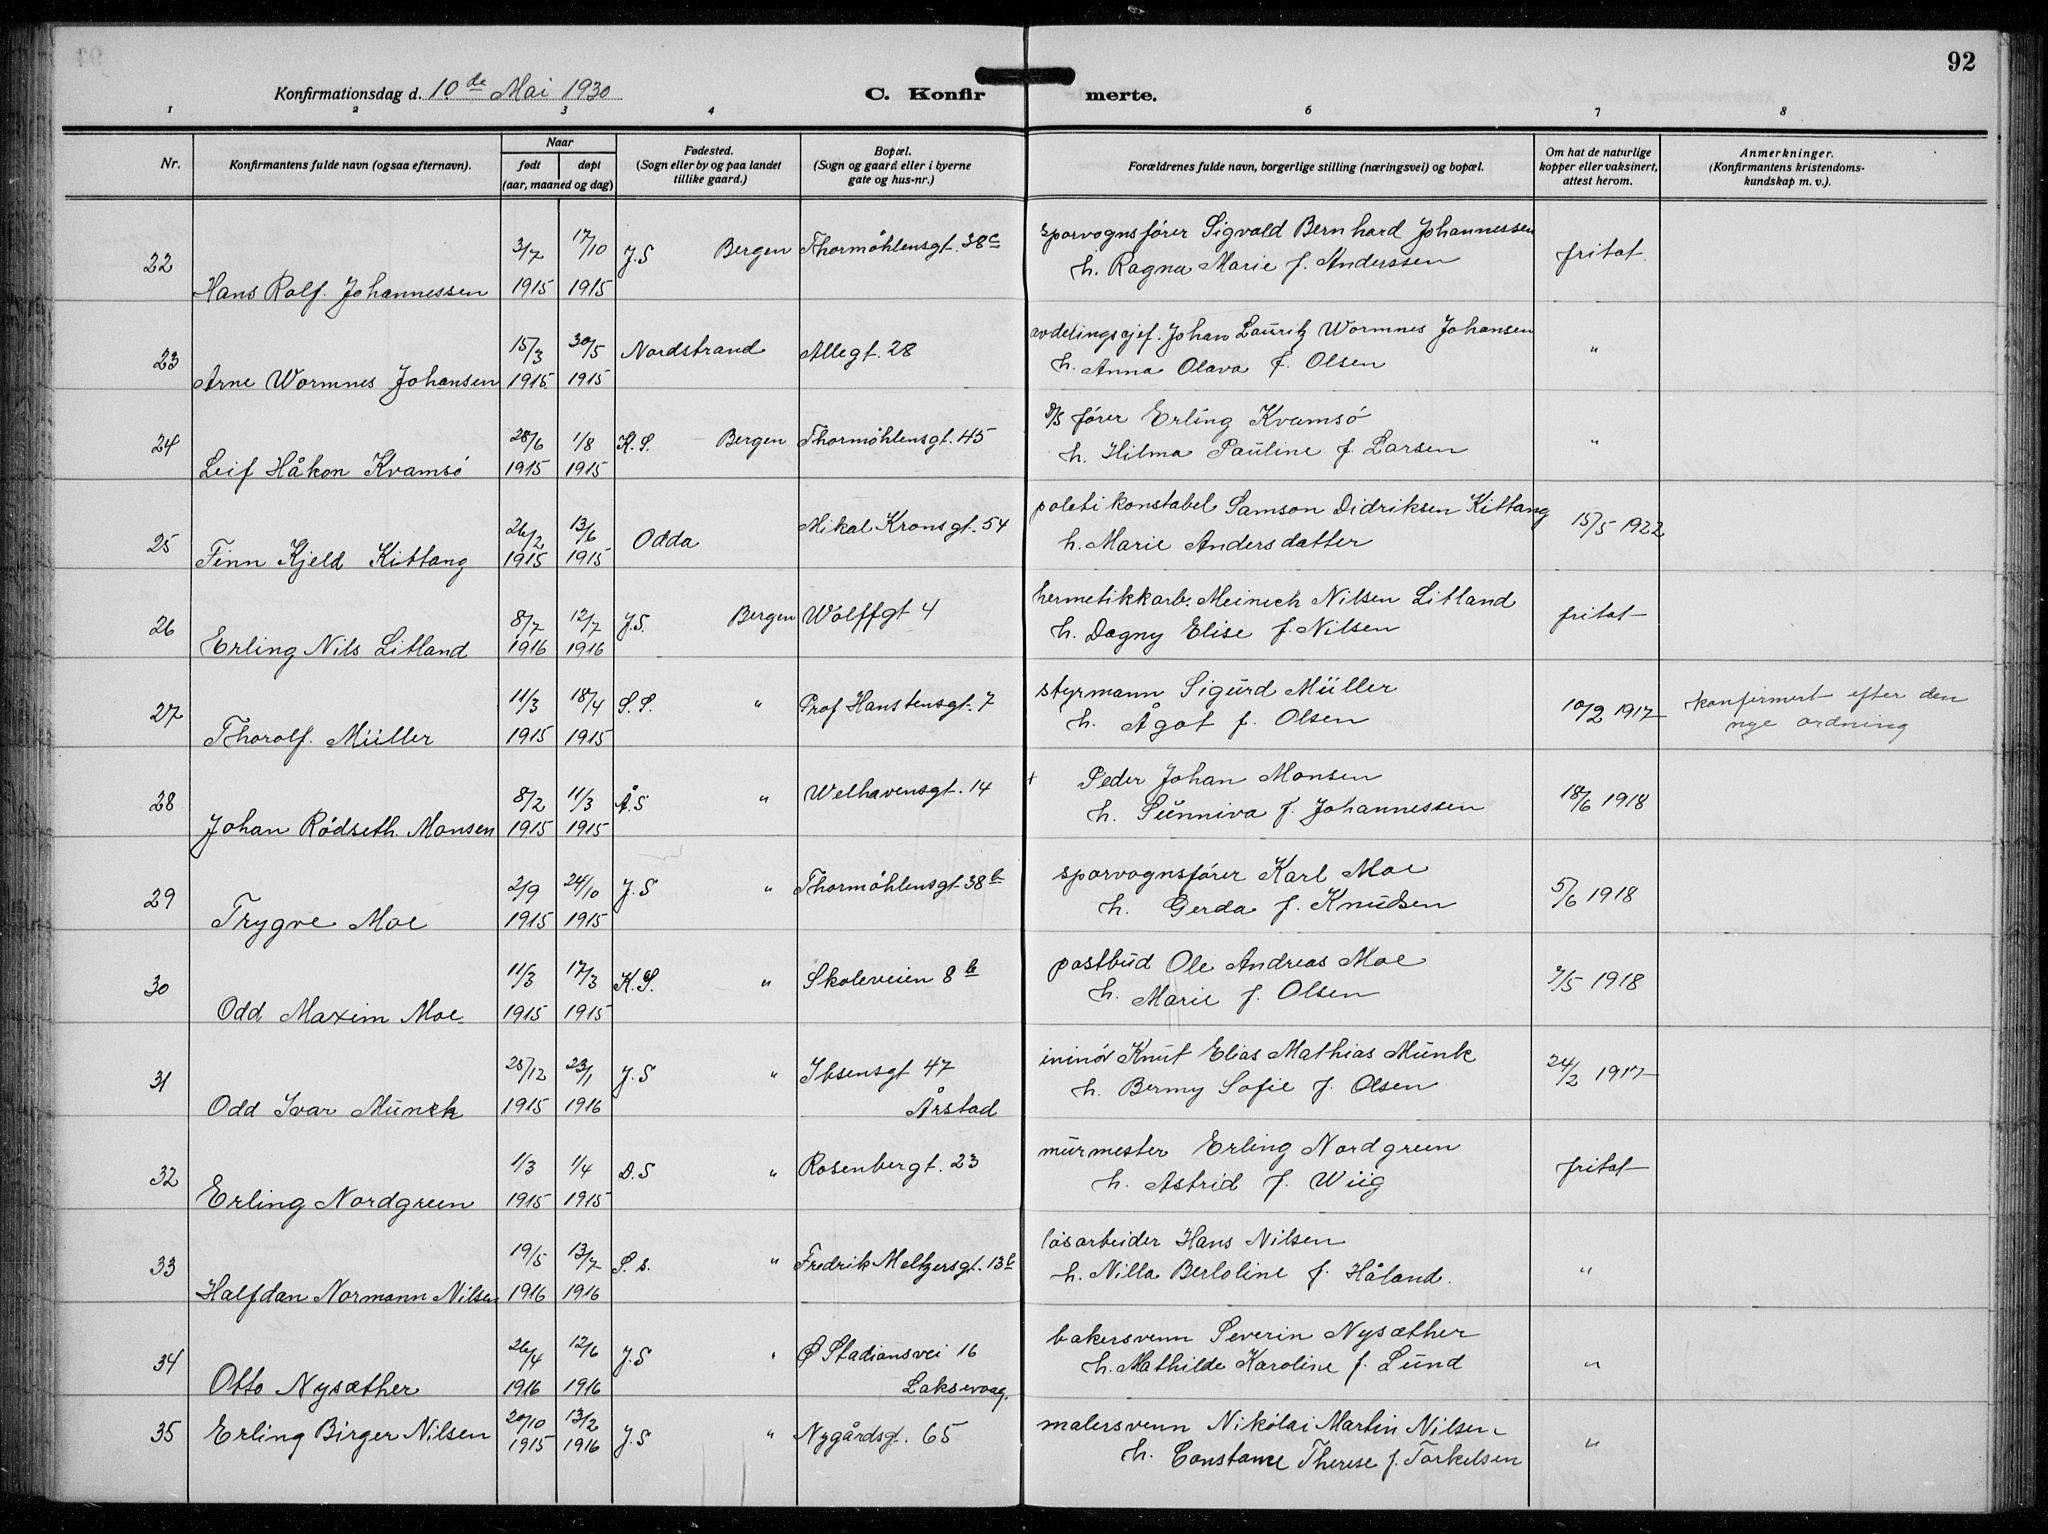 92
Konfirmationsdag d. 10de Mai 1930 C. Konfirmerte.
1 2 3 4 6 7 8
Nr. Konfirmantens fulde navn (ogsaa efternavn). Naar født døpt (aar, maaned og dag) Fødested. (Sogn eller by og paa landet tillike gaard.) Bopæl. (Sogn og gaard eller i byerne gate og hus-nr.) Forældrenes fulde navn, borgerlige stilling (næringsvei) og bopæl. Om hat de naturlige kopper eller vaksinert, attest herom. Anmerkninger. (Konfirmantens kristendomskundskap m. v.).
22 3/7 17/10 J.S Bergen Thormøhlensgt. 38c sporvognsfører Sigvald Bernhard Johannessen fritat
Hans Rolf. Johannessen 1915 1915 h. Ragna Marie f. Anderssen
23 15/3 30/5 Nordstrand Allegt. 28 avdelingssjef. Johan Lauritz Wormnes Johansen "
Arne Wormnes Johansen 1915 1915 h. Anna Olava f. Olsen
24 28/6 1/8 K.S. Bergen Thormøhlensgt. 45 D/S fører Erling Kvamsø "
Leif Håkon Kvamsø 1915 1915 h. Hilma Pauline f Larsen
25 26/2 13/6 Odda Mikal Kronsgt. 54 poletikonstabel Samson Didriksen Kittang 15/5 1922
Finn Kjeld Kittang 1915 1915 h. Marie Andersdatter
26 8/7 12/7 J.S. Bergen Wolffgt 4 hermetikkarb. Meinich Nilsen Litland fritat
Erling Nils Litland 1916 1916 h. Dagny Elise f. Nilsen
27 11/3 18/4 S.S. " Prof Hanstensgt. 7 styrmann Sigurd Müller 10/2 1917 konfirmert efter den
Thorolf. Müller 1915 1915 h. Ågot f. Olsen nye ordning
28 8/2 11/3 Å.S " Welhavensgt. 14 + Peder Johan Monsen 18/6 1918
Johan Rødseth. Monsen 1915 1915 h. Sunniva f. Johannessen
29 2/9 24/10 J.S " Thormøhlensgt 38b sporvognsfører Karl Moe 5/6 1918
Trygve Moe 1915 1915 h. Gerda f. Knudsen
30 11/3 17/3 K.S. " Skoleveien 8b postbud Ole Andreas Moe 7/5 1918
Odd Maxim Moe 1915 1915 h. Marie f. Olsen
31 25/12 23/1 J.S " Ibsensgt 47 Knut Elias Mathias Munk 24/2 1917
Odd Ivar Munck 1915 1916 Årstad h. Bermy Sofie f. Olsen
32 1/3 1/4 D.S " Rosenbergt. 23 murmester Erling Nordgreen fritat
Erling Nordgreen 1915 1915 h. Astrid f. Wiig
33 19/5 13/7 S.s. " Fredrik Meltzersgt. 13b løsarbeider Hans Nilsen "
Halfdan Normann Nilsen 1916 1916 h. Nilla Bertoline f. Håland.
34 26/4 12/6 J.S " Ø Stadionsvei 16 bakersvenn Severin Nysæther "
Otto Nysæther 1916 1916 Laksevaag. h. Mathilde Karoline f. Lund
35 Erling Birger Nilsen 20/10 1915 13/2 1916 J.S " Nygårdsgt. 65 malersvenn Nikolai Martin Nilsen "
h. Constance Therese f. Torkelsen